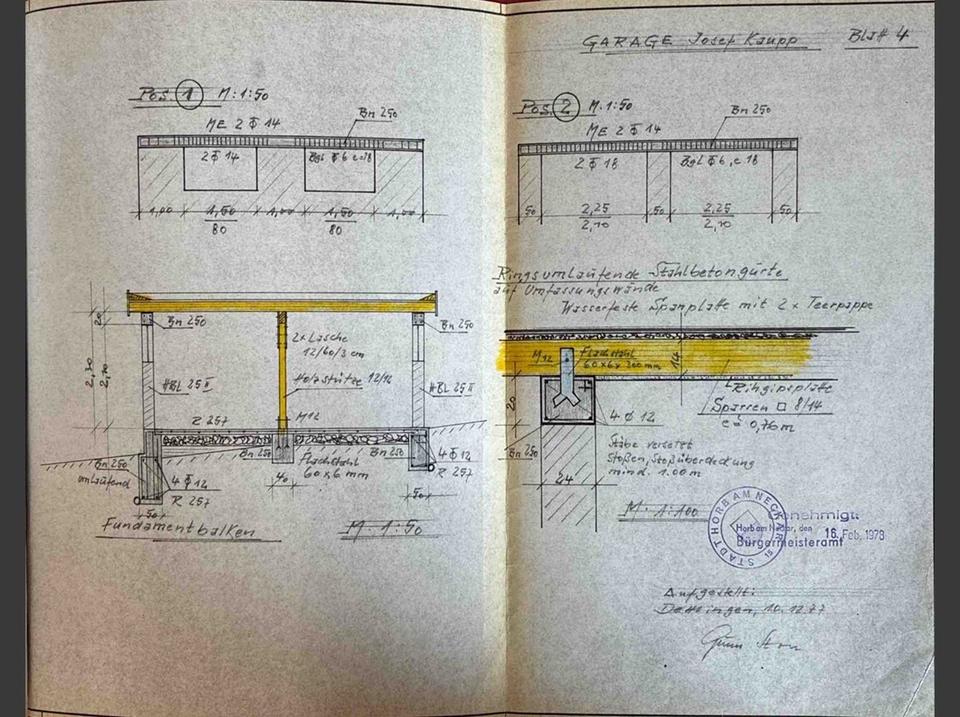 GARAGE Josef Kaupp Blatt 4
Pos. 1 M: 1:50
Bn 250
ME 2 Φ 14
2 Φ 14
Bgl Φ 6 e=18
1,00 1,50 1,00 1,50 1,00
80 80
Pos. 2 M: 1:50
Bn 250
ME 2 Φ 14
2 Φ 18
Bgl Φ 6, e 18
50 2,25 50 2,25 50
2,10 2,10
Bn 250
Bn 250
20
2,30
2,10
2x Lasche
12/60/3 cm
Holzstütze 12/12
HBL 25 II
HBL 25 II
R 257
M12
Bn 250
umlaufend
4 Φ 12
R 257
50
Bn 250
40
Flachstahl
60x6 mm
Bn 250
4 Φ 12
R 257
50
Fundamentbalken
M 1:50
Ringsumlaufende Stahlbetongurte
auf Umfassungswände
Wasserfeste Spanplatte mit 2 x Teerpappe
M12
Flachstahl
60x6x300mm
14
Ringipsplatte
Sparren □ 8/14
e = 0,76 m
20
4 Φ 12
Bn 250
Stäbe versetzt
Stoßen, Stoßüberdeckung
mind. 1.00m
24
M. 1:100
STADT HORB AM NECKAR
Genehmigt:
Horb am Neckar, den 16. Feb. 1978
Bürgermeisteramt
Aufgestellt:
Dettingen, 10.12.77